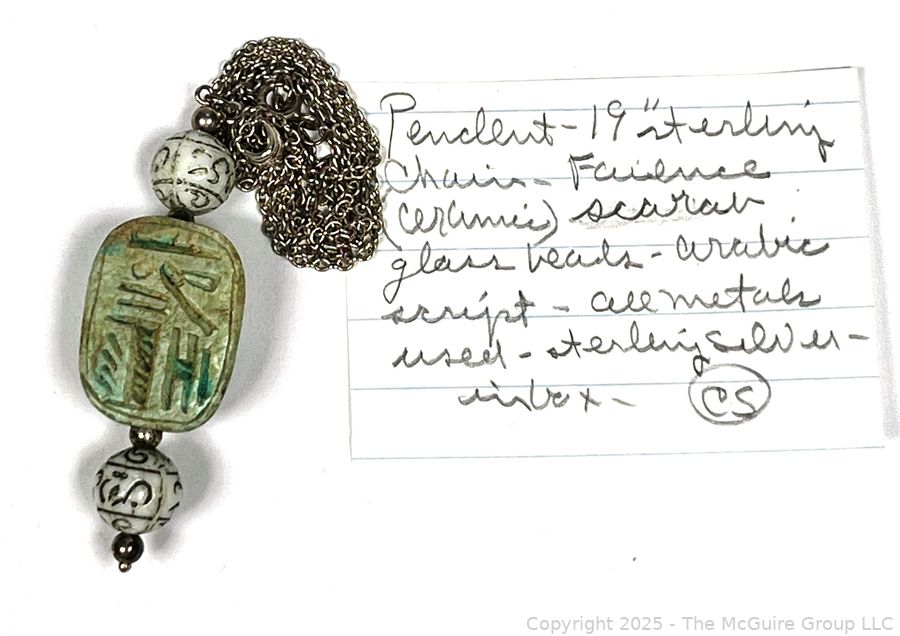 Pendent - 19" sterling
Chain - Faience
(ceramic) scarab
glass beads - arabic
script - all metals
used - sterling silver -
in box -
CS
Copyright 2025 - The McGuire Group LLC